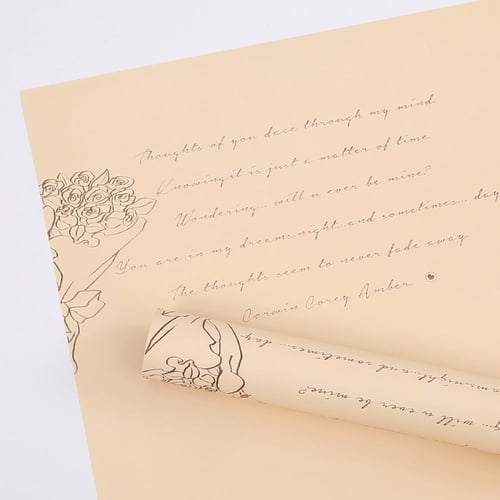 Thoughts of you dace through my mind.
Knowing it is just a matter of time.
Wondering... will u ever be mine?
You are in my dreams.night...and sometimes... day
The thoughts seem to never fade away.
Corwin Corey Amber
and sometimes... day
will u ever be mine?